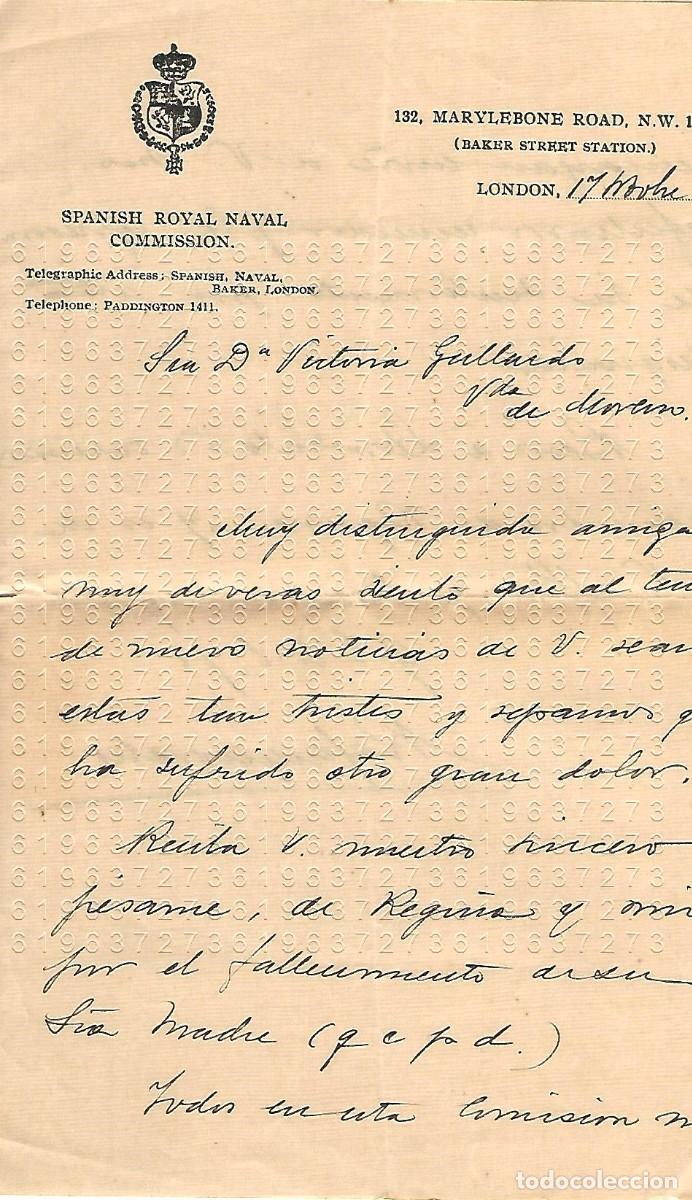 132, MARYLEBONE ROAD, N.W. 1
(BAKER STREET STATION.)
LONDON, 17
SPANISH ROYAL NAVAL
COMMISSION.
Telegraphic Address: SPANISH, NAVAL,
BAKER, LONDON.
Telephone: PADDINGTON 1411.
Sra Dª Victoria Gallardo
Vda
de Moreno.
Muy distinguida amiga
muy de veras siento que al ten
de nuevo noticias de V. sean
estas tan tristes y sepamos q
ha sufrido otro gran dolor.
Reciba V. nuestro sincero
pésame, de Regina y mi
por el fallecimiento de su
Sra Madre (q e p d.)
Todos en esta Comision
todocoleccion